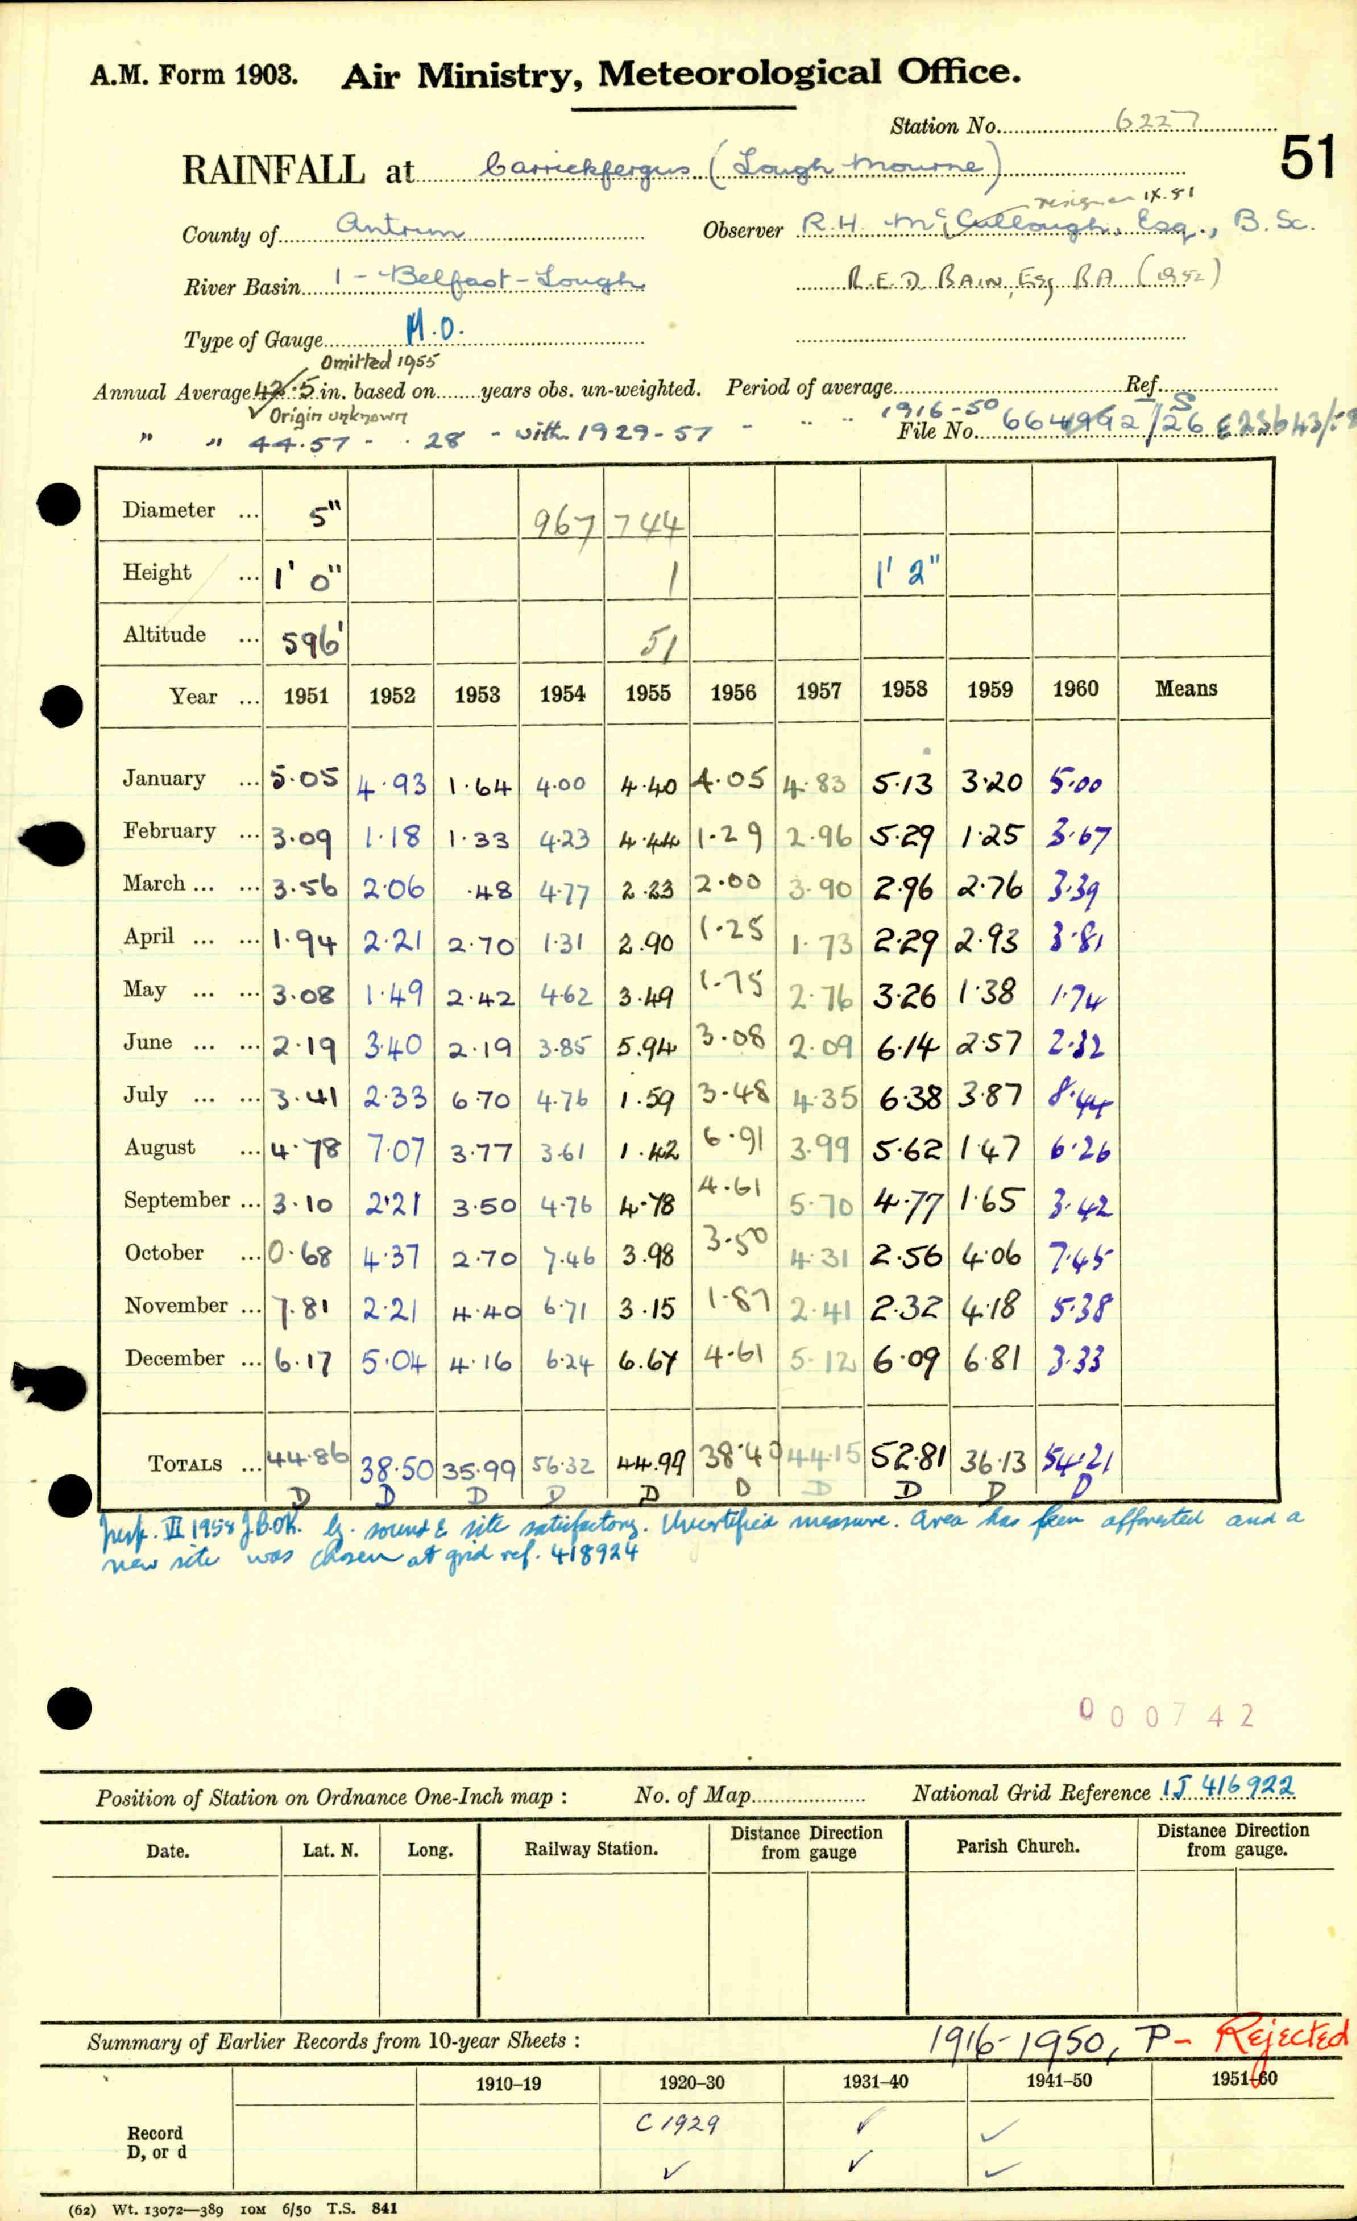 A.M. Form 1903. Air Ministry, Meteorological Office.
Station No. 6227
51
RAINFALL at Carrickfergus (Lough Mourne)
resigned IX.51
County of Antrim Observer R.H. McCullough, Esq., B.Sc.
River Basin 1 - Belfast-Lough R.E.D. BAIN, Esq BA (1952)
Type of Gauge M.O.
Omitted 1955
Annual Average 42.5 in. based on years obs. un-weighted. Period of average Ref.
Origin unknown
1916-50
" " 44.57 - . 28 - with 1929-57 - - .. File No. 664992/S/26
Diameter ... 5" 967 744
Height ... 1' 0" 1 1' 2"
Altitude ... 596' 51
Year ... 1951 1952 1953 1954 1955 1956 1957 1958 1959 1960 Means
January ... 5.05 4.93 1.64 4.00 4.40 4.05 4.83 5.13 3.20 5.00
February ... 3.09 1.18 1.33 4.23 4.44 1.29 2.96 5.29 1.25 3.67
March ... ... 3.56 2.06 .48 4.77 2.23 2.00 3.90 2.96 2.76 3.39
April ... ... 1.94 2.21 2.70 1.31 2.90 1.25 1.73 2.29 2.93 3.81
May ... ... 3.08 1.49 2.42 4.62 3.49 1.75 2.76 3.26 1.38 1.74
June ... ... 2.19 3.40 2.19 3.85 5.94 3.08 2.09 6.14 2.57 2.32
July ... ... 3.41 2.33 6.70 4.76 1.59 3.48 4.35 6.38 3.87 8.44
August ... 4.78 7.07 3.77 3.61 1.42 6.91 3.99 5.62 1.47 6.26
September ... 3.10 2.21 3.50 4.76 4.78 4.61 5.70 4.77 1.65 3.42
October ... 0.68 4.37 2.70 7.46 3.98 3.50 4.31 2.56 4.06 7.45
November ... 7.81 2.21 4.40 6.71 3.15 1.87 2.41 2.32 4.18 5.38
December ... 6.17 5.04 4.16 6.24 6.67 4.61 5.12 6.09 6.81 3.33
TOTALS ... 44.86 38.50 35.99 56.32 44.99 38.40 44.15 52.81 36.13 54.21
D D D D D D D D D D
Insp. VII 1958 J.B.OK. Lg. sound & site satisfactory. Uncertified measure. Area has been afforested and a
new site was chosen at grid ref. 418924
000742
Position of Station on Ordnance One-Inch map : No. of Map National Grid Reference IJ 416922
Date. Lat. N. Long. Railway Station. Distance from gauge Direction Parish Church. Distance Direction from gauge.
Summary of Earlier Records from 10-year Sheets : 1916-1950, P - Rejected
1910–19 1920–30 1931–40 1941–50 1951–60
Record C 1929 ✓ ✓
D, or d ✓ ✓ ✓
(62) Wt. 13072—389 10M 6/50 T.S. 841